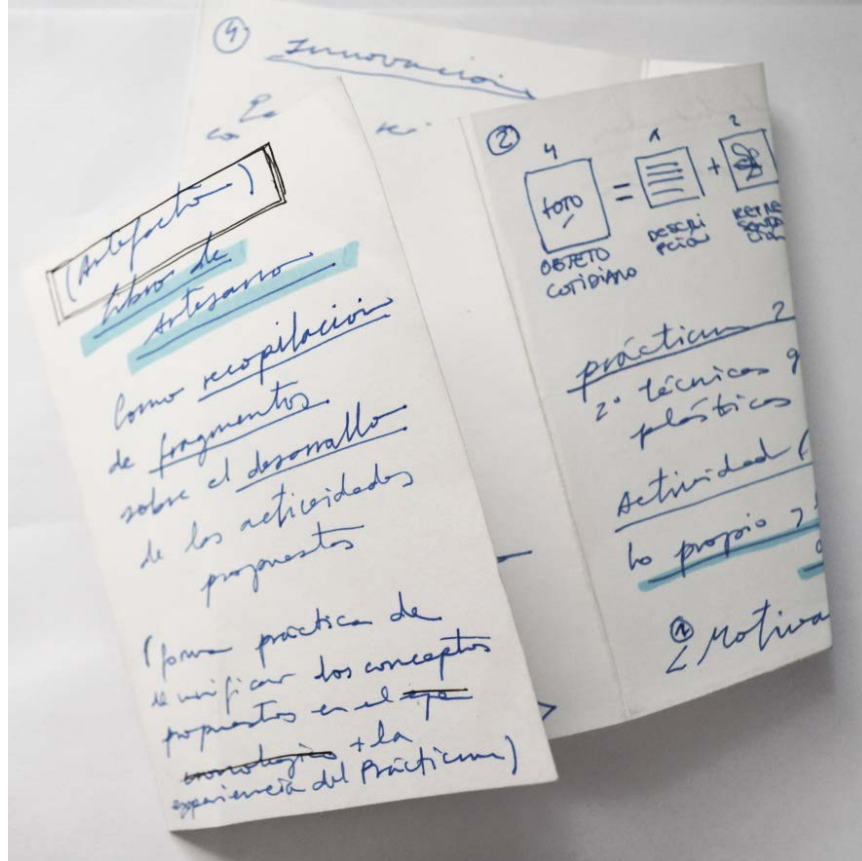 ④ Innovación
La
(Artefacto)
Libro de
Artesano
Como recopilación
de fragmentos
sobre el desarrollo
de las actividades
propuestas
(forma práctica de
unificar los conceptos
propuestos en el eje
cronológico + la
experiencia del Prácticum)
②
4 1 2
FOTO = +
OBJETO COTIDIANO
DESCRIPCIÓN
REPRESENTACIÓN
prácticum 2
2º técnicas g
plásticas
Actividad (
Lo propio y
① Motiva